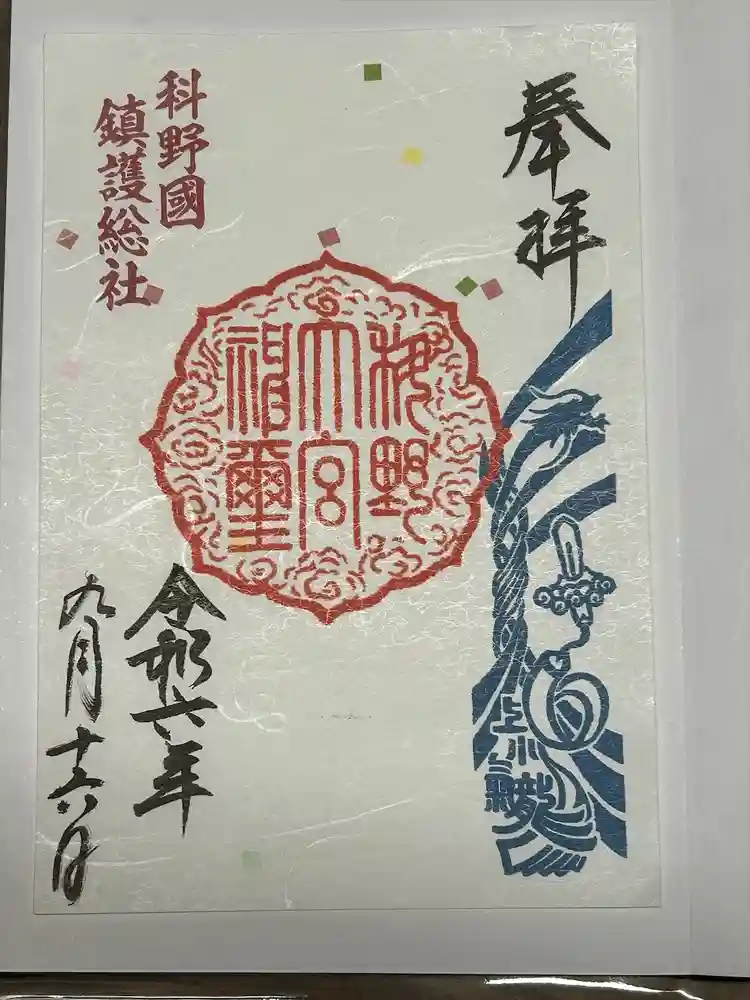 奉拝
科野
大宮
神璽
上小
三龍
科野國
鎮護総社
令和六年
九月十六日